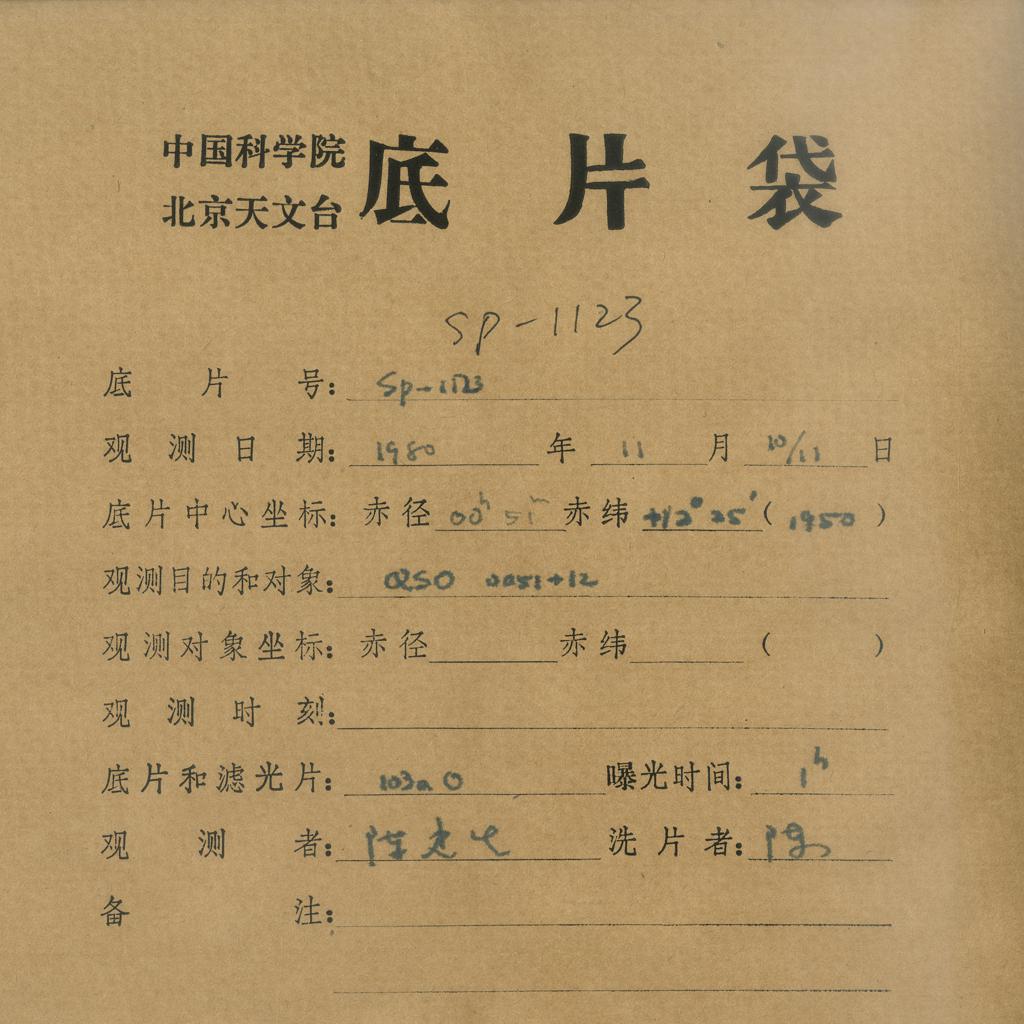 中国科学院
北京天文台
底片袋
sp-1123
底片号: Sp-1123
观测日期: 1980 年 11 月 10/11 日
底片中心坐标: 赤径 00h 51m 赤纬 +12° 25′ ( 1950 )
观测目的和对象: QSO 0051+12
观测对象坐标: 赤径 赤纬 ( )
观测时刻:
底片和滤光片: 103a O 曝光时间: 1h
观测者: 陈 洗片者: 陈
备注: